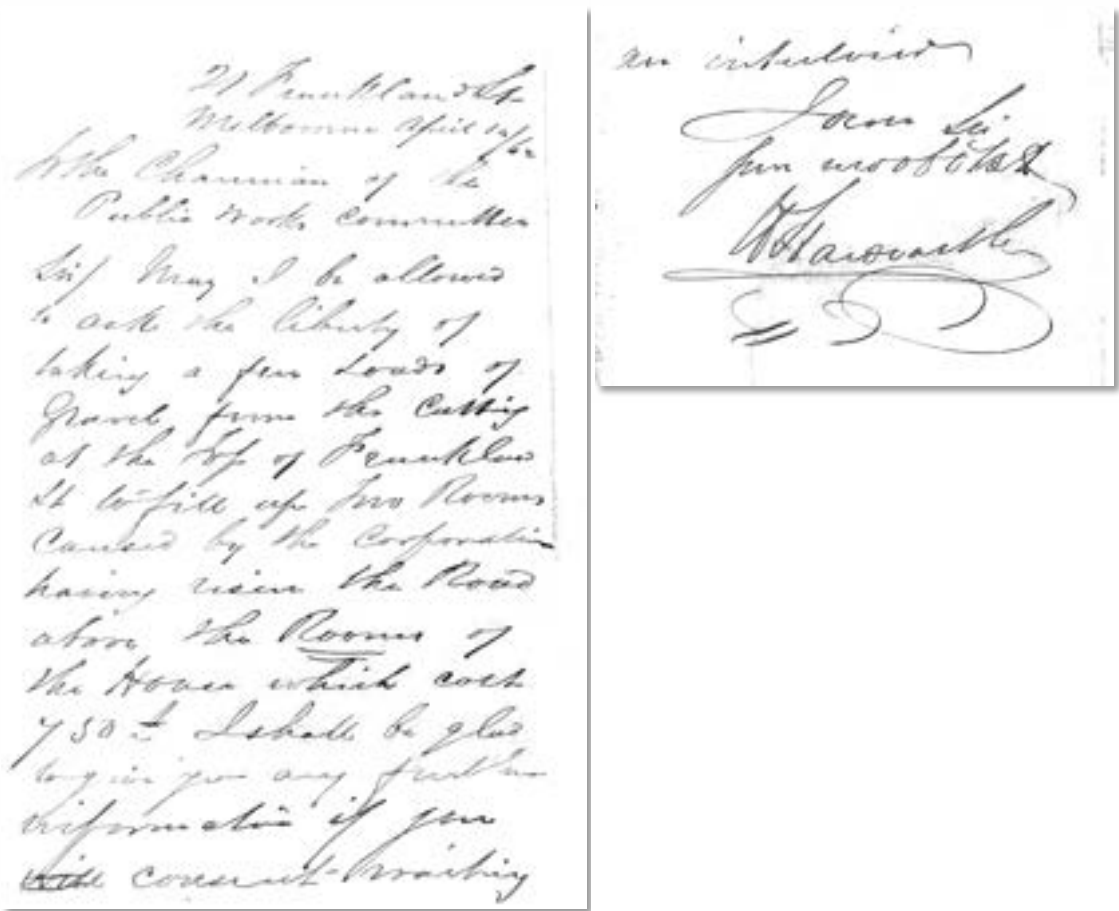 21 Franklin St
Melbourne April 14/62
To the Chairman of the
Public Works Committee
Sir/ May I be allowed
to ask the liberty of
taking a few Loads of
Gravel from the Cutting
at the Top of Franklin
St to fill up two Rooms
Caused by the Corporation
having risen the Road
above the Rooms of
the House which cost
750£ I shall be glad
to give you any further
information if you
will consent waiting
an interview
I am Sir
your most obt